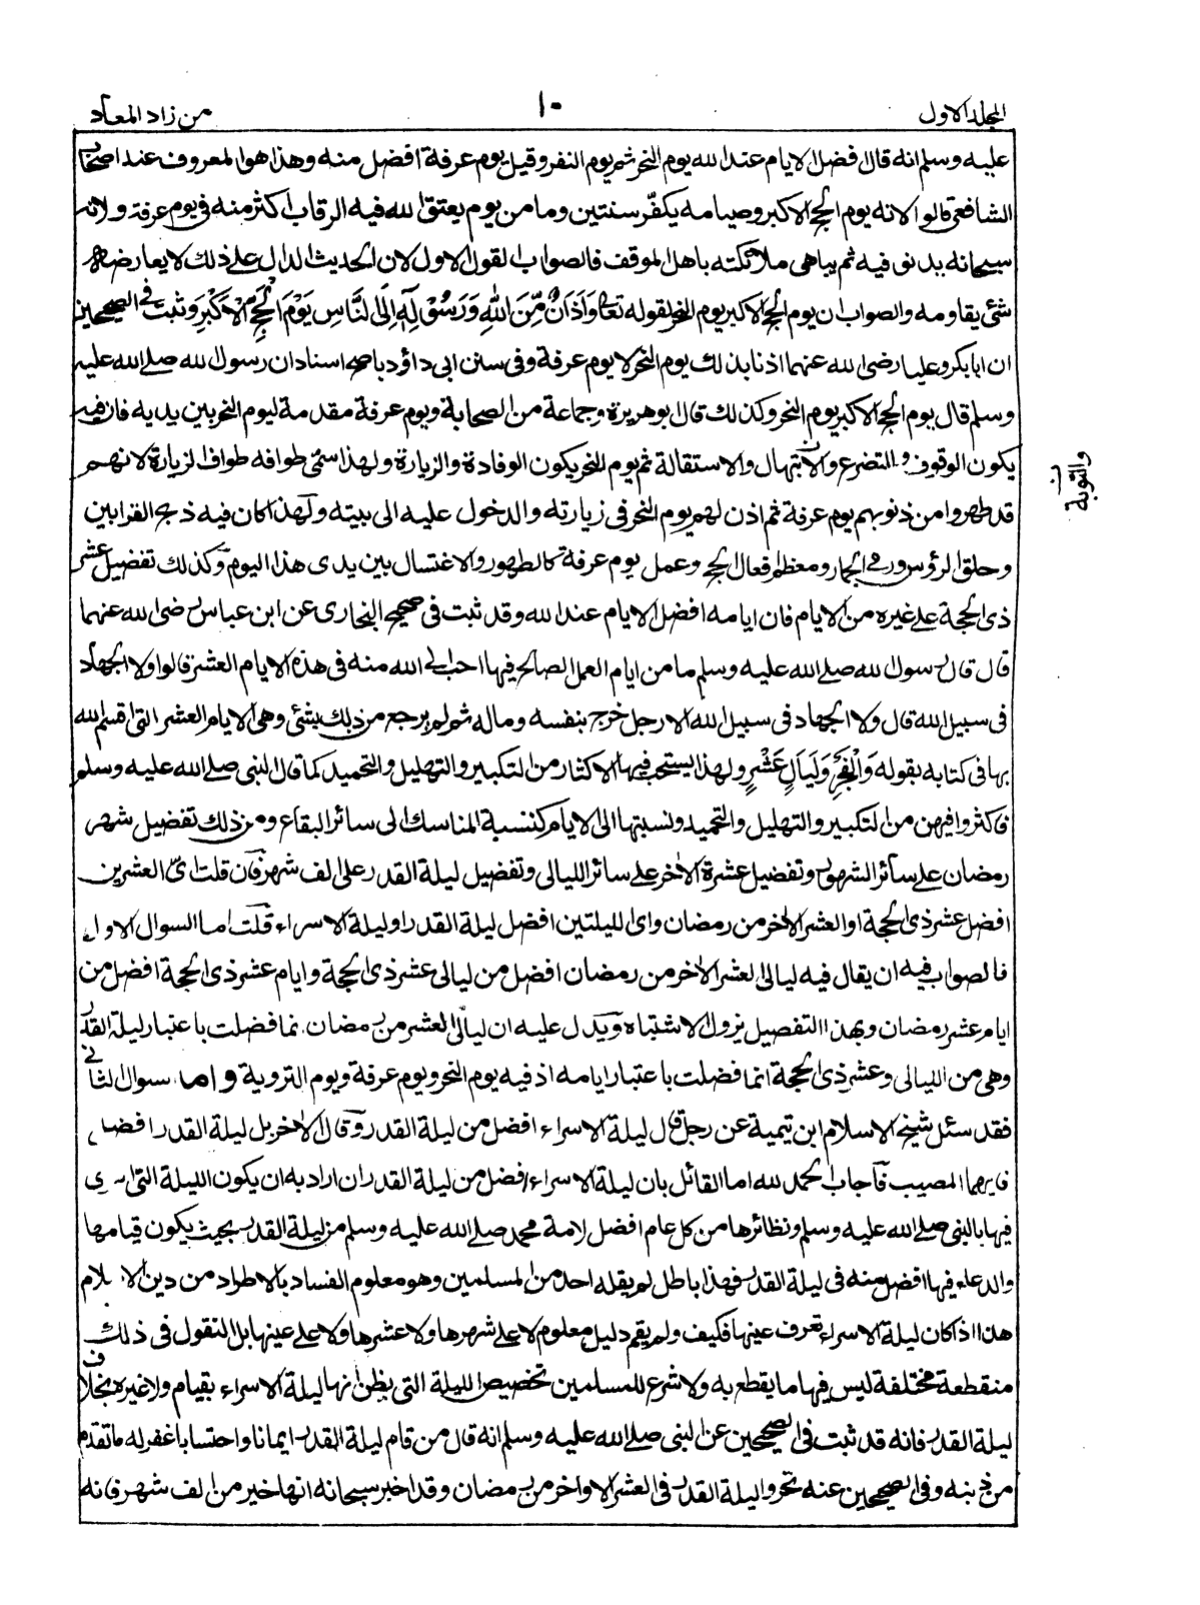 المجلد الاول
١٠
من زاد المعاد
عليه وسلم انه قال افضل الايام عند الله يوم النحر ثم يوم النفر وقيل يوم عرفة افضل منه وهذا هو المعروف عند اصحاب
الشافعي قالوا لانه يوم الحج الاكبر وصيامه يكفّر سنتين وما من يوم يعتق الله فيه الرقاب اكثر منه في يوم عرفة ولانه
سبحانه يدنو فيه ثم يباهى ملائكته باهل الموقف فالصواب القول الاول لان الحديث الدال على ذلك لا يعارضه
شئ يقاومه والصواب ان يوم الحج الاكبر يوم النحر لقوله تعالى وَاَذَانٌ مِّنَ اللهِ وَرَسُوْلِهِ اِلَى النَّاسِ يَوْمَ الْحَجِّ الْاَكْبَرِ وثبت في الصحيحين
ان ابا بكر وعليا رضى الله عنهما اذنا بذلك يوم النحر لا يوم عرفة وفى سنن ابى داؤد باصح اسناد ان رسول الله صلے الله عليه
وسلم قال يوم الحج الاكبر يوم النحر وكذلك قال ابو هريرة وجماعة من الصحابة ويوم عرفة مقدمة ليوم النحر بين يديه فان فيه
يكون الوقوف والتضرع والابتهال والاستقالة ثم يوم النحر يكون الوفادة والزيارة ولهذا سمى طوافه طواف الزيارة لانهم
والتوبة
ن
قد طهروا من ذنوبهم يوم عرفة ثم اذن لهم يوم النحر فى زيارته والدخول عليه الى بيته ولهذا كان فيه ذبح القرابين
وحلق الرؤس ورمى الجمار ومعظم افعال الحج وعمل يوم عرفة كالطهور والاغتسال بين يدى هذا اليوم وكذلك تفضيل عشر
ذى الحجة على غيره من الايام فان ايامه افضل الايام عند الله وقد ثبت فى صحيح البخارى عن ابن عباس رضى الله عنهما
قال قال رسول الله صلے الله عليه وسلم ما من ايام العمل الصالح فيها احب الى الله منه فى هذه الايام العشر قالوا ولا الجهاد
فى سبيل الله قال ولا الجهاد فى سبيل الله الا رجل خرج بنفسه وماله ثم لم يرجع من ذلك بشئ وهى الايام العشر التى اقسم الله
بها فى كتابه بقوله وَالْفَجْرِ وَلَيَالٍ عَشْرٍ ولهذا يستحب فيها الاكثار من التكبير والتهليل والتحميد كما قال النبى صلے الله عليه وسلم
فاكثروا فيهن من التكبير والتهليل والتحميد ونسبتها الى الايام كنسبة المناسك الى سائر البقاع ومن ذلك تفضيل شهر
رمضان على سائر الشهور وتفضيل عشرة الاخر على سائر الليالى وتفضيل ليلة القدر على الف شهر فان قلت اىّ العشرين
افضل عشر ذى الحجة او العشر الاخر من رمضان واى الليلتين افضل ليلة القدر او ليلة الاسراء قلت اما السوال الاول
فالصواب فيه ان يقال فيه ليالى العشر الاخر من رمضان افضل من ليالى عشر ذى الحجة وايام عشر ذى الحجة افضل من
ايام عشر رمضان وبهذا التفصيل يزول الاشتباه ويدل عليه ان ليالى العشر من رمضان انما فضلت باعتبار ليلة القدر
وهى من الليالى وعشر ذى الحجة انما فضلت باعتبار ايامه اذ فيه يوم النحر ويوم عرفة ويوم التروية واما السوال الثاني
فقد سئل شيخ الاسلام ابن تيمية عن رجل قال ليلة الاسراء افضل من ليلة القدر وقال الاخر بل ليلة القدر افضل
فايهما المصيب فاجاب الحمد لله اما القائل بان ليلة الاسراء افضل من ليلة القدر ان اراد به ان يكون الليلة التى اسرى
فيها بالنبى صلے الله عليه وسلم ونظائرها من كل عام افضل لامة محمد صلے الله عليه وسلم من ليلة القدر بحيث يكون قيامها
والدعاء فيها افضل منه فى ليلة القدر فهذا باطل لم يقله احد من المسلمين وهو معلوم الفساد بالاطراد من دين الاسلام
هذا اذا كان ليلة الاسراء تعرف عينها فكيف ولم يقم دليل معلوم لا على شهرها ولا عشرها ولا على عينها بل النقول فى ذلك
منقطعة مختلفة ليس فيها ما يقطع به ولا شرع للمسلمين تخصيص الليلة التى يظن انها ليلة الاسراء بقيام ولا غيره بخلاف
ليلة القدر فانه قد ثبت فى الصحيحين عن النبى صلے الله عليه وسلم انه قال من قام ليلة القدر ايمانا واحتسابا غفر له ما تقدم
من ذنبه وفى الصحيحين عنه تحروا ليلة القدر فى العشر الاواخر من رمضان وقد اخبر سبحانه انها خير من الف شهر فانه